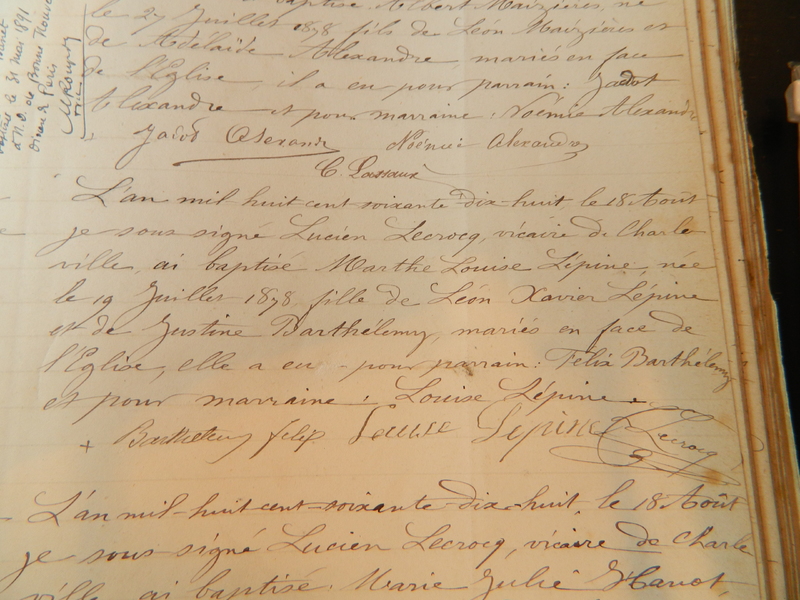 baptisé Albert Maizières, né
le 27 Juillet 1878 fils de Léon Maizières et
de Adélaïde Alexandre, mariés en face
de l'Eglise, il a eu pour parrain: Jacob
Alexandre et pour marraine: Noémie Alexandre
Jacob Alexandre Noémie Alexandre
C. Lassaux
L'an mil huit cent soixante dix-huit le 18 Août
je sous signé Lucien Lecrocq, vicaire de Charle
ville, ai baptisé Marthe Louise Lépine, née
le 19 Juillet 1878, fille de Léon Xavier Lépine
et de Justine Barthélemy, mariés en face de
l'Eglise, elle a eu pour parrain: Felix Barthélemy
et pour marraine: Louise Lépine.
+ Barthelemy felix Louise Lepine Lecrocq
L'an mil-huit-cent-soixante-dix-huit, le 18 Août
je sous-signé Lucien Lecrocq, vicaire de Charle
ville, ai baptisé Marie Julie
le 31 mai 1891
N. D. de Bonne Nouvelle
Paris